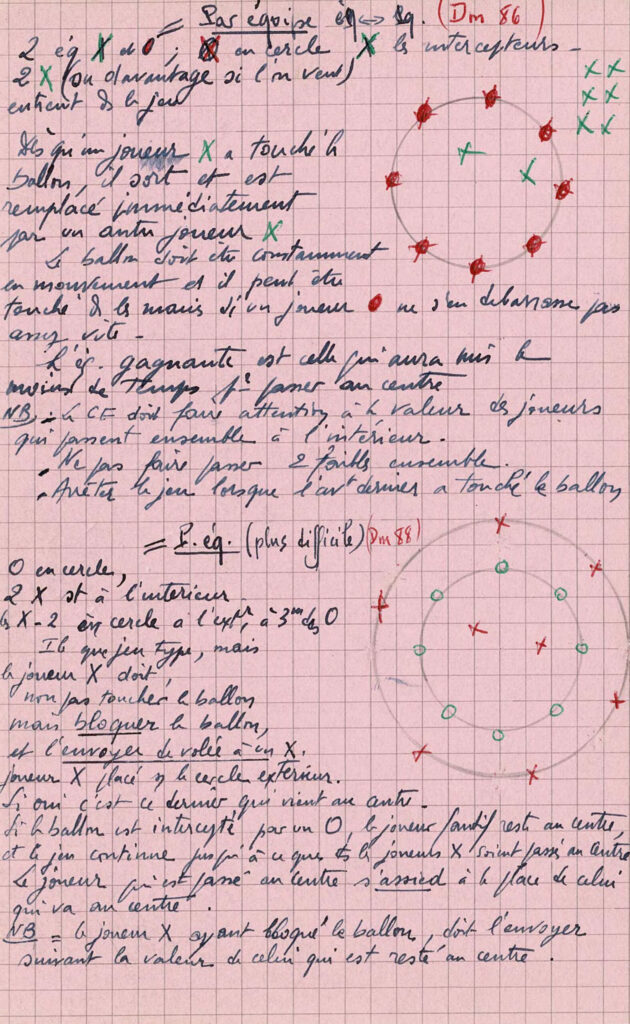 = Par équipe éq ↔ éq. (Dm 86)
2 éq X et 0 ; 0 en cercle X les intercepteurs -
2 X (ou davantage si l'on veut)
entrent ds le jeu
Dès qu'un joueur X a touché le
ballon, il sort et est
remplacé immédiatement
par un autre joueur X
Le ballon doit être constamment
en mouvement et il peut être
touché ds les mains si un joueur 0 ne s'en débarrasse pas
assez vite -
L'éq. gagnante est celle qui aura mis le
moins de temps pr passer au centre
NB - Le CE doit faire attention à la valeur des joueurs
qui passent ensemble à l'intérieur.
- Ne pas faire passer 2 faibles ensemble.
- Arrêter le jeu lorsque l'avt dernier a touché le ballon
= P. éq. (plus difficile) (Dm 88)
O en cercle,
2 X st à l'intérieur
les X-2 en cercle à l'extr, à 3m des O
que jeu type, mais
le joueur X doit,
non pas toucher le ballon
mais bloquer le ballon,
et l'envoyer de volée à un X.
joueur X placé le cercle extérieur.
Si oui c'est ce dernier qui vient au centre.
Si le ballon est intercepté par un O, le joueur fautif reste au centre,
et le jeu continue jusqu'à ce que ts les joueurs X soient passés au centre
Le joueur qui est passé au centre s'assied à la place de celui
qui va au centre.
NB = le joueur X ayant bloqué le ballon, doit l'envoyer
suivant la valeur de celui qui est resté au centre.